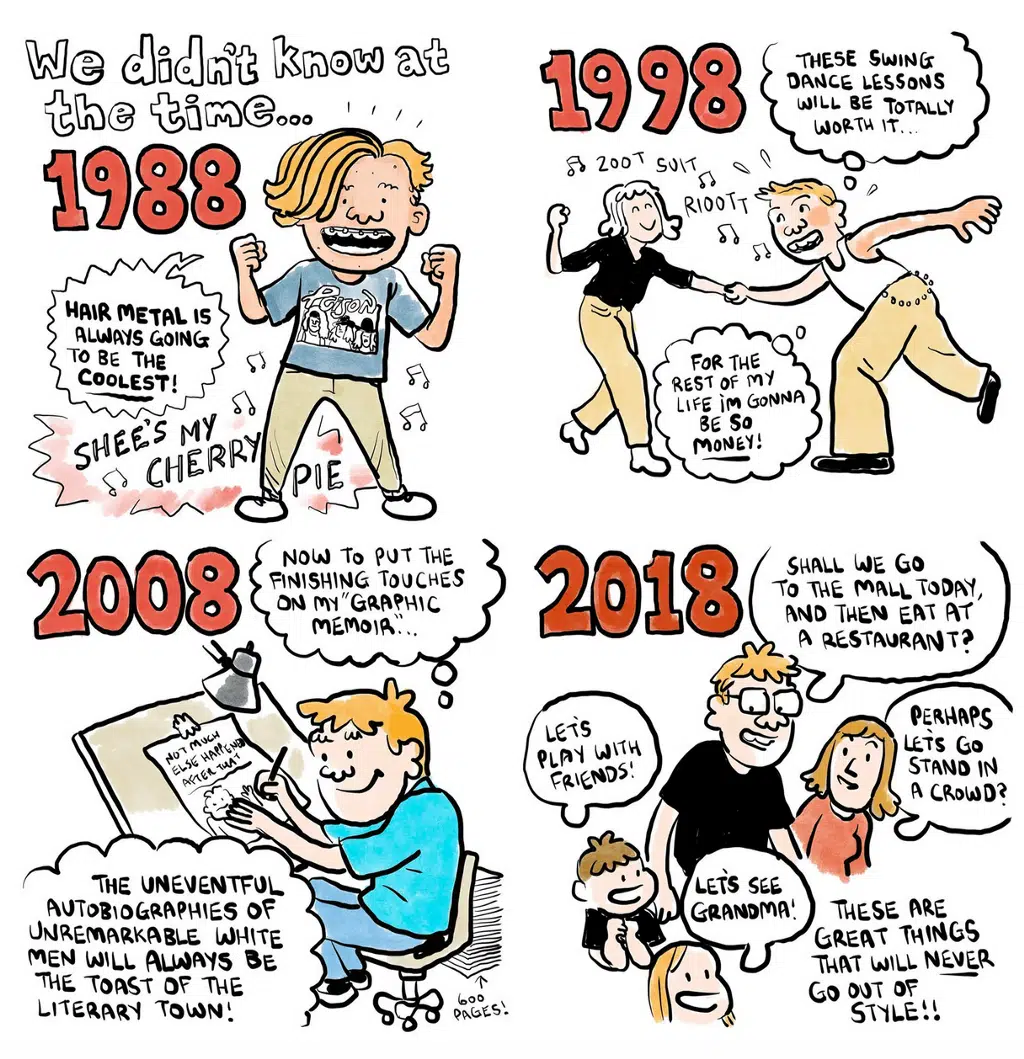 We didn't know at
the time...
1988
Poison
HAIR METAL IS
ALWAYS GOING
TO BE THE
COOLEST!
SHEE'S MY
CHERRY
PIE
1998
THESE SWING
DANCE LESSONS
WILL BE TOTALLY
WORTH IT...
ZOOT SUIT
RIOOTT
FOR THE
REST OF MY
LIFE i'M GONNA
BE SO
MONEY!
2008
NOW TO PUT THE
FINISHING TOUCHES
ON MY "GRAPHIC
MEMOIR"...
NOT MUCH
ELSE HAPPENED
AFTER THAT
THE UNEVENTFUL
AUTOBIOGRAPHIES OF
UNREMARKABLE WHITE
MEN WILL ALWAYS BE
THE TOAST OF THE
LITERARY TOWN!
600
PAGES!
2018
SHALL WE GO
TO THE MALL TODAY,
AND THEN EAT AT
A RESTAURANT?
LET'S
PLAY WITH
FRIENDS!
PERHAPS
LET'S GO
STAND IN
A CROWD?
LET'S SEE
GRANDMA!
THESE ARE
GREAT THINGS
THAT WILL NEVER
GO OUT OF
STYLE!!